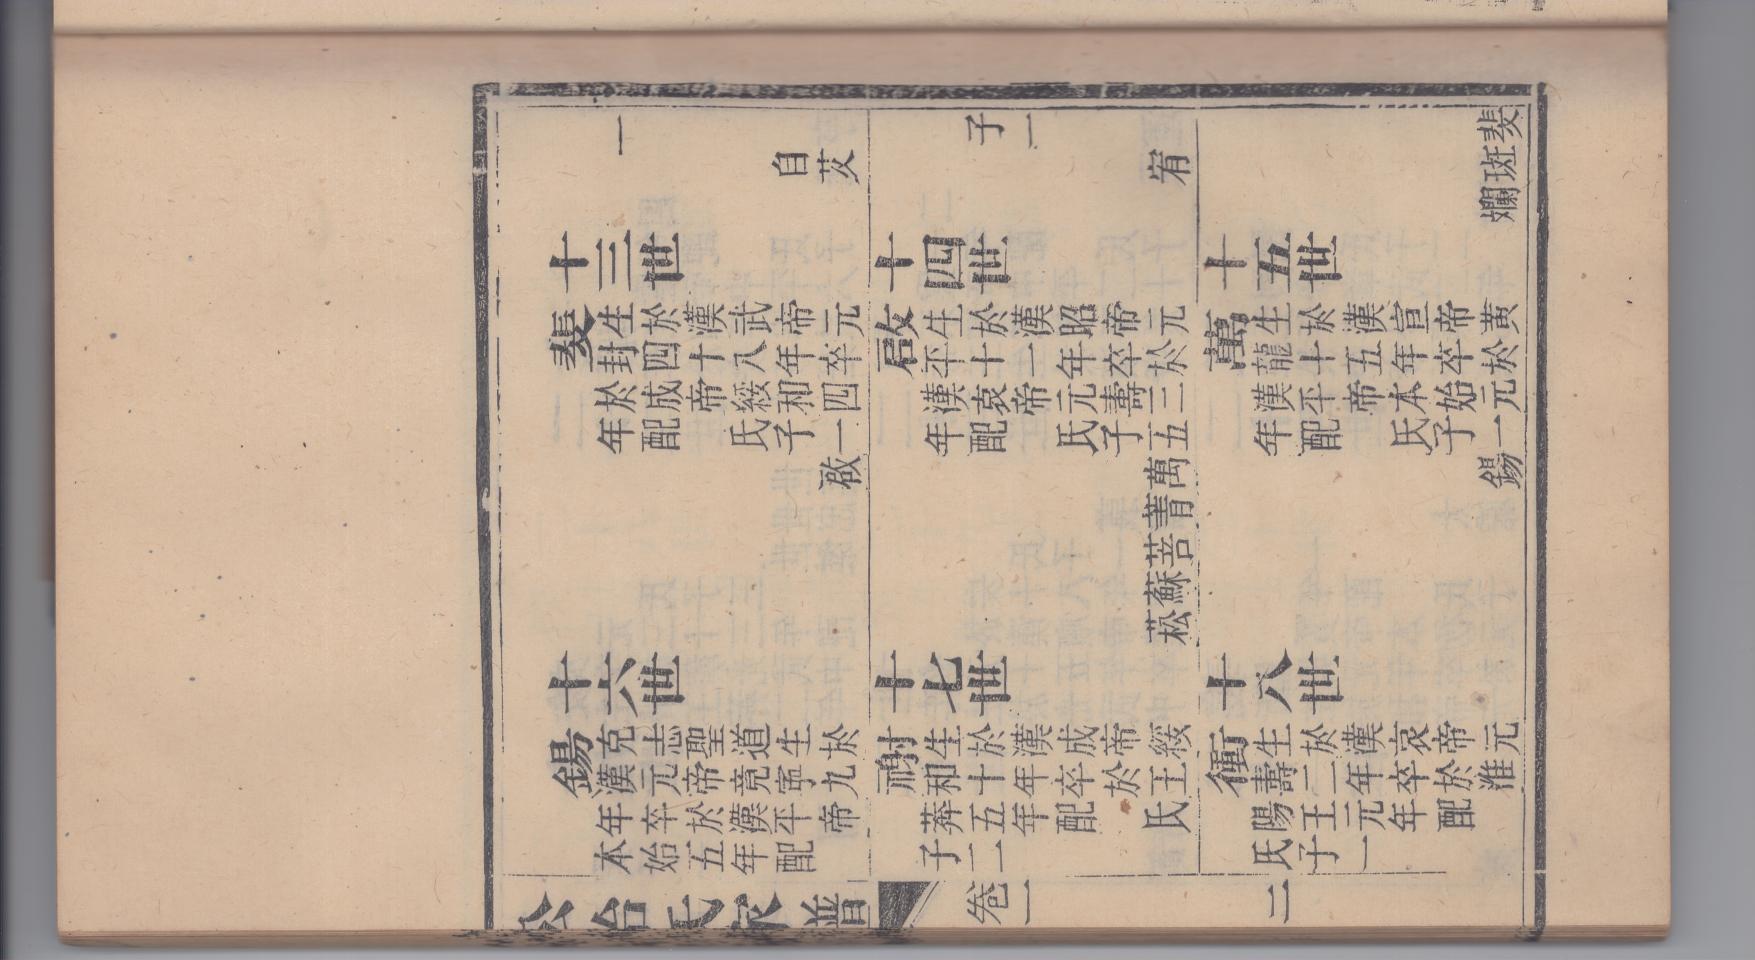 一
自
艾
十三世
斐
生於漢武帝元
封四十八年卒
於成帝綏和四
年配　氏子一
啟
十六世
錫
克志聖道生於
漢元帝竟寧九
年卒於漢平帝
本始五年配
子一
宥
十四世
啟
生於漢昭帝元
平十一年卒於
漢哀帝元壽三
年配　氏子五
萬
菁
菩
蘇
菘
十七世
射
生於漢成帝綏
和十年卒於王
莽五年配　氏
子二
斐
斑
斕
十五世
萬
生於漢宣帝黃
龍十五年卒於
漢平帝本始元
年配　氏子一
錫
十八世
衝
生於漢哀帝元
壽二年卒於淮
陽王元年配
氏子一
公冶氏家譜　卷一　二